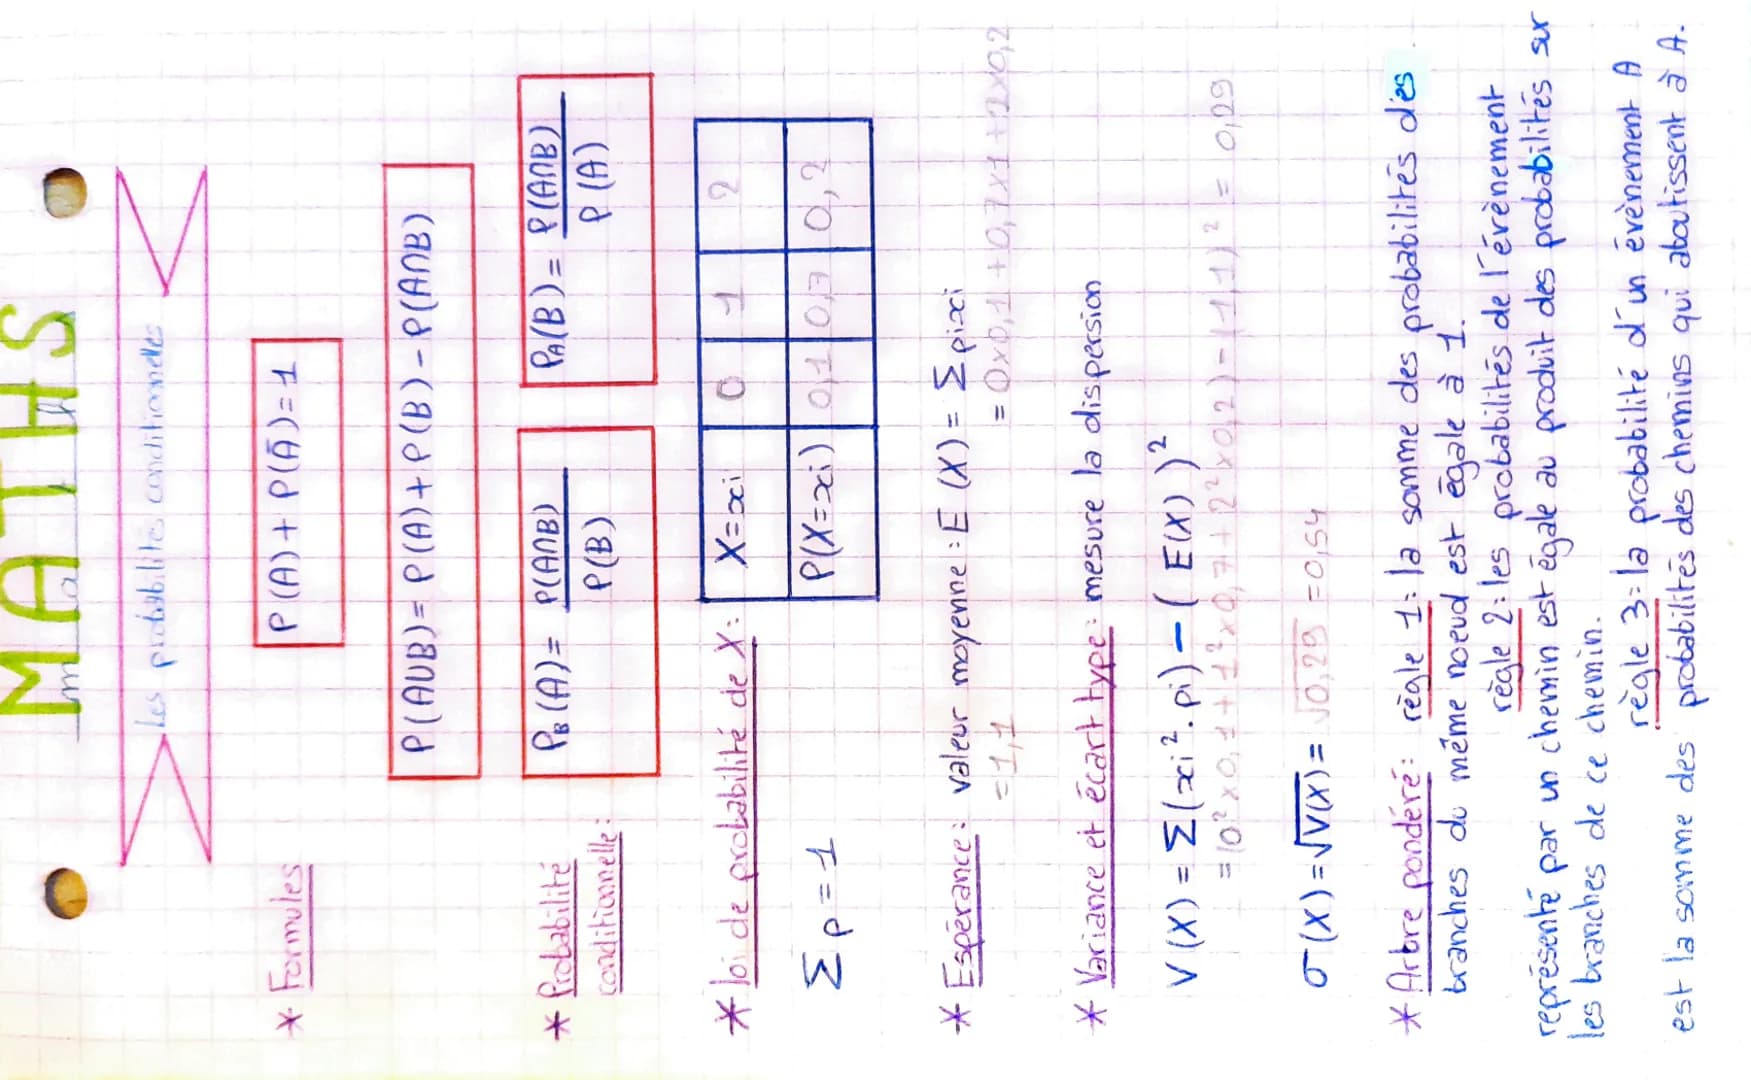 MATHS
Les probabilités conditionnelles
* Formules
P(A) + P(Ā) = 1
P(A∪B) = P(A) + P(B) - P(A∩B)
* Probabilité conditionnelle :
P_B(A) = P(A∩B) / P(B)
P_A(B) = P(A∩B) / P(A)
* loi de probabilité de X :
X=xi 0 1 2
P(X=xi) 0,1 0,7 0,2
Σ p = 1
* Espérance : valeur moyenne : E(X) = Σ pixi
= 0x0,1 + 0,7x1 + 2x0,2
= 1,1
* Variance et écart type : mesure la dispersion
V(X) = Σ(xi².pi) - (E(X))²
= (0²x0,1 + 1²x0,7 + 2²x0,2) - (1,1)² = 0,29
σ(X) = √V(X) = √0,29 = 0,54
* Arbre pondéré : règle 1 : la somme des probabilités des
branches du même noeud est égale à 1.
règle 2 : les probabilités de l'évènement
représenté par un chemin est égale au produit des probabilités sur
les branches de ce chemin.
règle 3 : la probabilité d'un évènement A
est la somme des probabilités des chemins qui aboutissent à A.